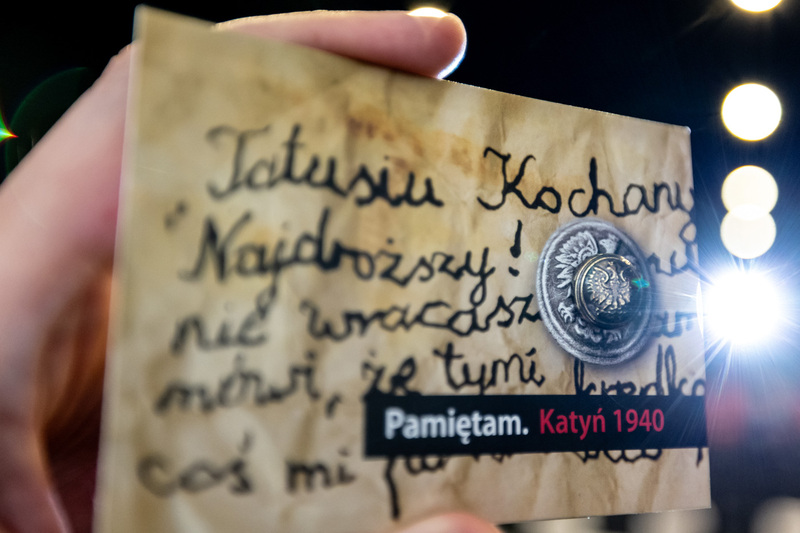 Tatusiu Kochany
Najdroższy!
nie wracasz
mówi, że tymi kredka
Pamiętam. Katyń 1940
coś mi